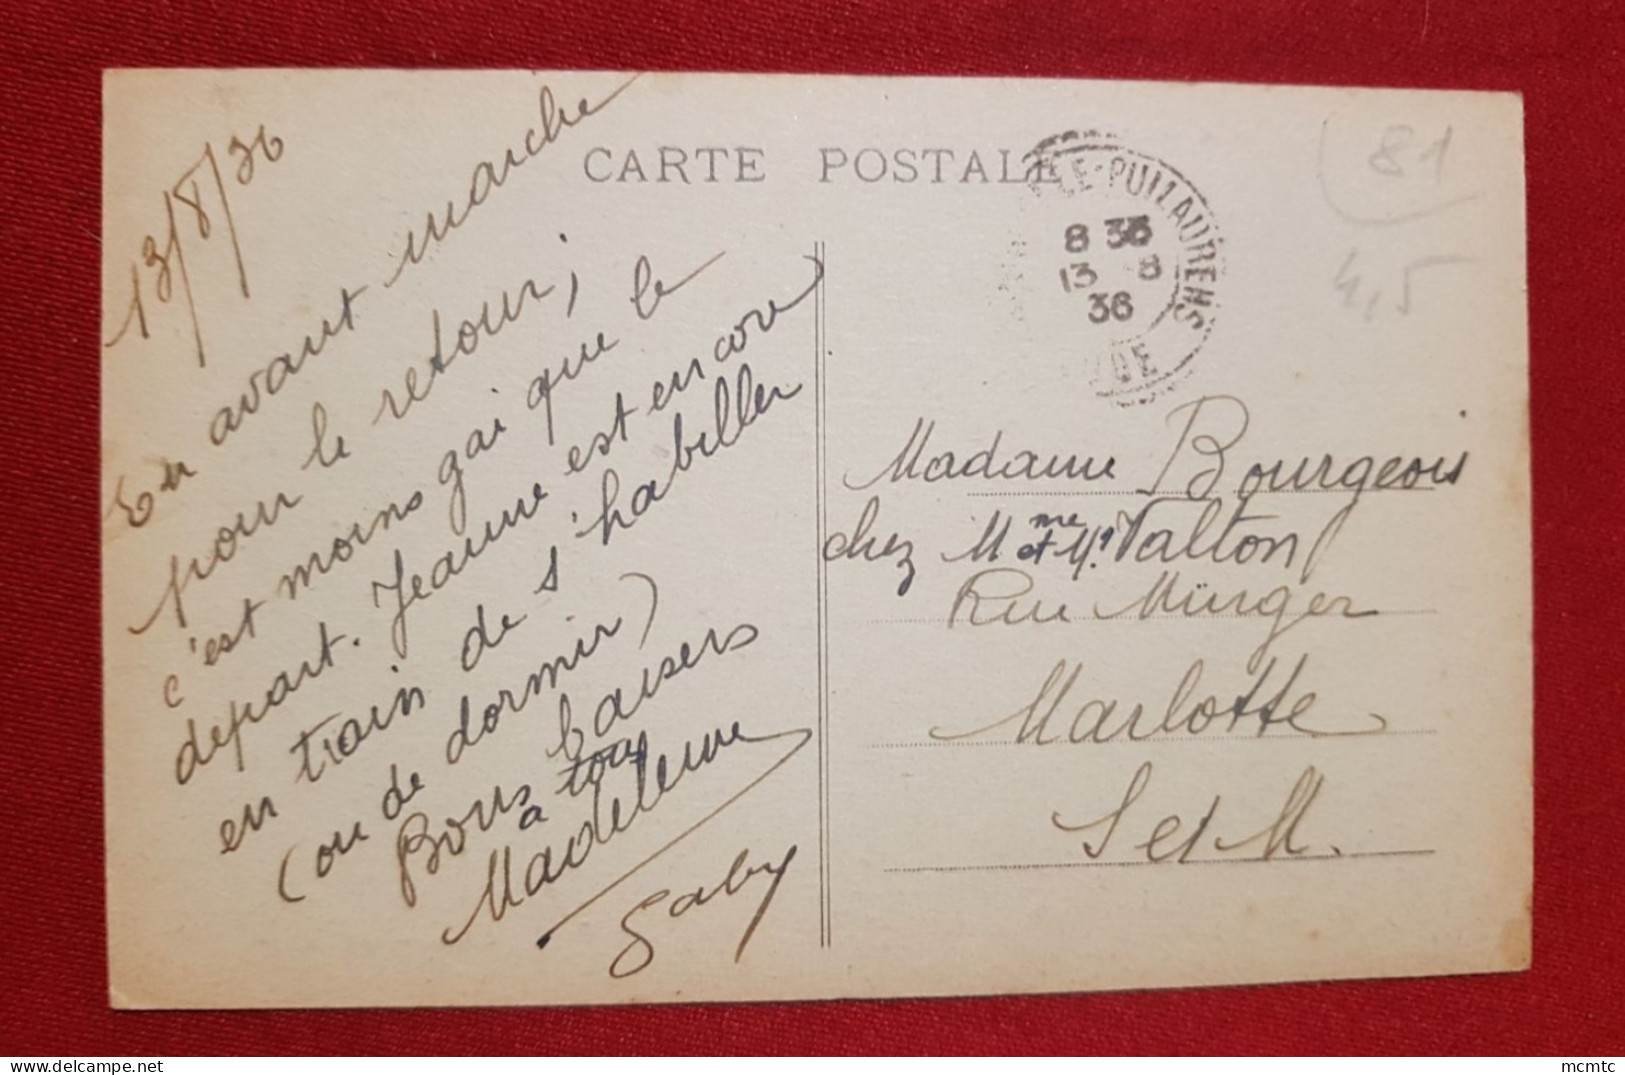 CARTE POSTALE
13/8/36
En avant marche
pour le retour;
c'est moins gai que le
depart. Jeanne est encore
en train de s'habiller
(ou de dormir)
Bons baisers
a tous
Madeleine
Gaby
PUIZAURENS
8 36
13 8
36
81
4,5
Madame Bourgeois
chez Mme et Mr Valton
Rue Mürger
Marlotte
S et M.
mcmtc